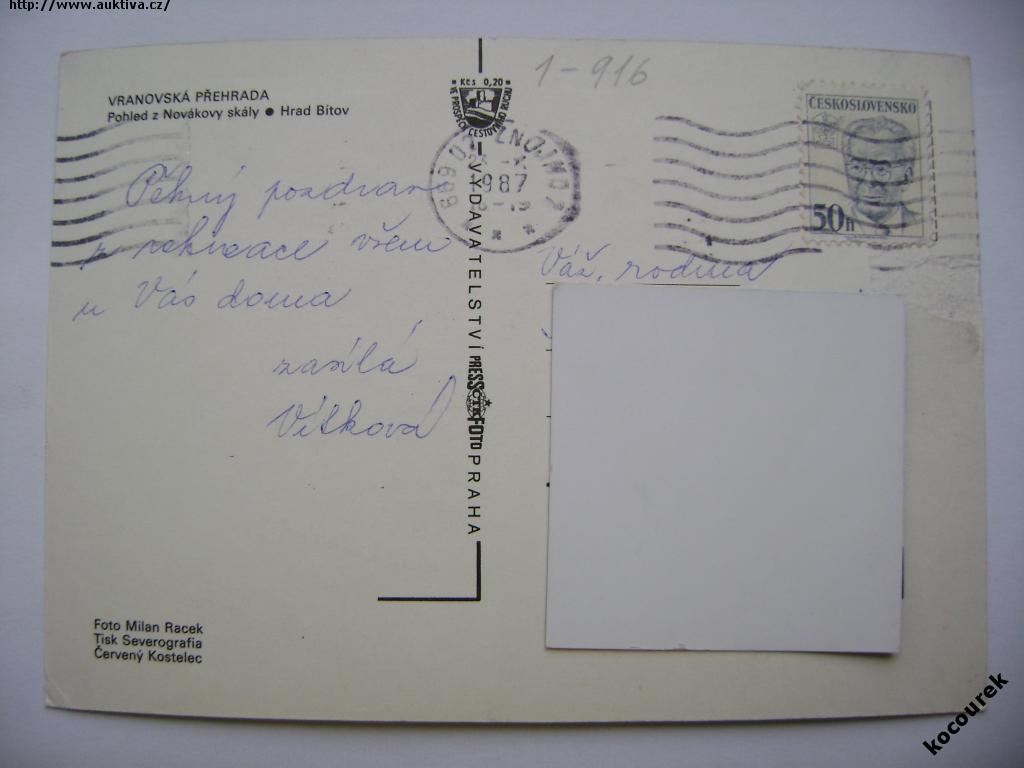 http://www.auktiva.cz/
1-916
VRANOVSKÁ PŘEHRADA
Pohled z Novákovy skály ● Hrad Bítov
Kčs 0,20
VE PROSPĚCH CESTOVNÍHO RUCHU
ČESKOSLOVENSKO
50h
669 02 ZNOJMO 2
987
Pěkný pozdrav
z rekreace všem
u Vás doma
zasílá
Vítková
Váž. rodina
VYDAVATELSTVÍ PRESSFOTO PRAHA
ČTK
Foto Milan Racek
Tisk Severografia
Červený Kostelec
kocourek